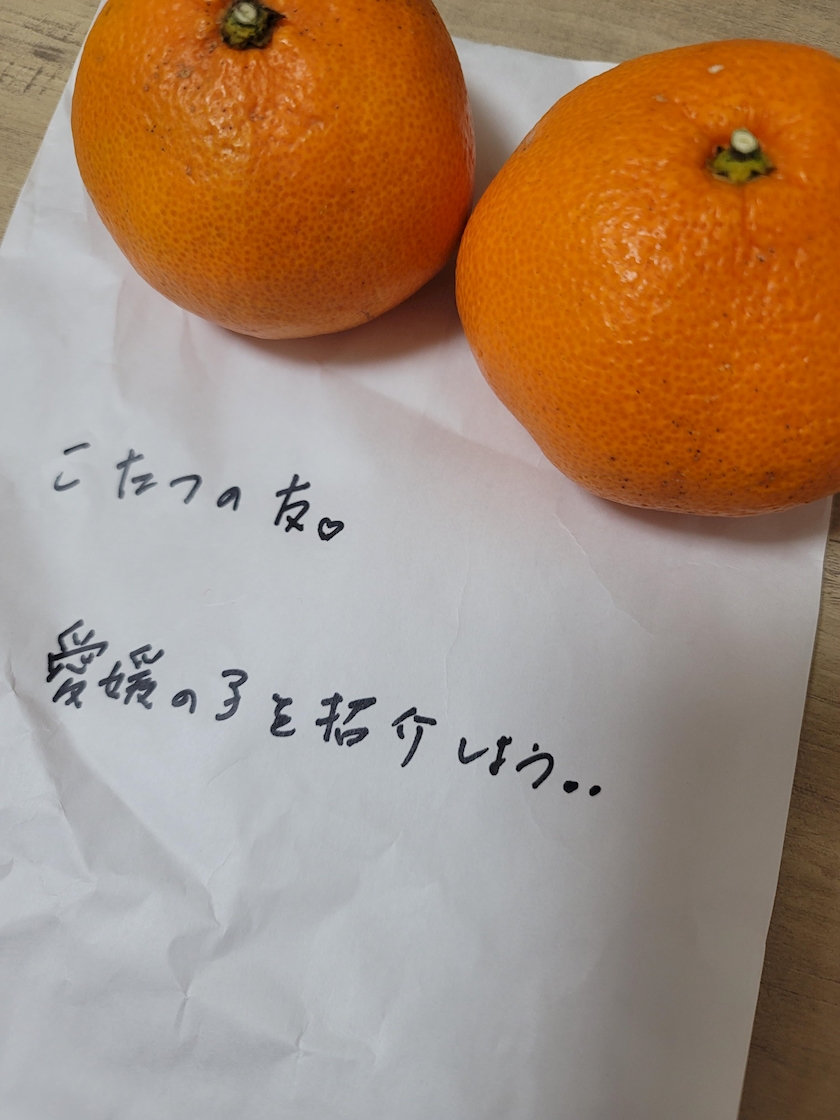 こたつの友♡
愛媛の子を招介しよう..